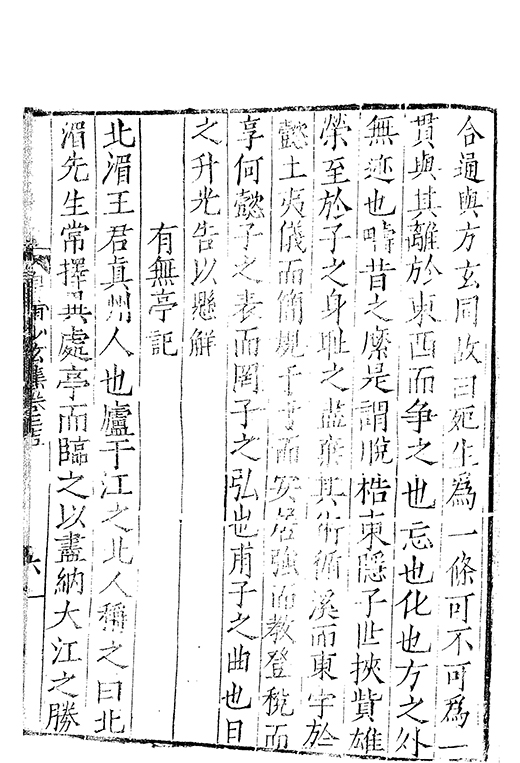 合通與方玄同故曰死生爲一條可不可爲一
貫與其離於東西而争之也忘也化也方之外
無迹也疇昔之縻是謂脫梏東隱子世挾貲雄
榮至於子之身耻之盡棄其術循溪而東宇於
懿土夷儀而簡規子子而安居強而教登稅而
享何懿子之表而罔子之弘也甫子之曲也曰
之升光告以懸解
有無亭記
北湄王君真州人也廬于江之北人稱之曰北
湄先生常擇其處亭而臨之以盡納大江之勝
少玄集卷
六